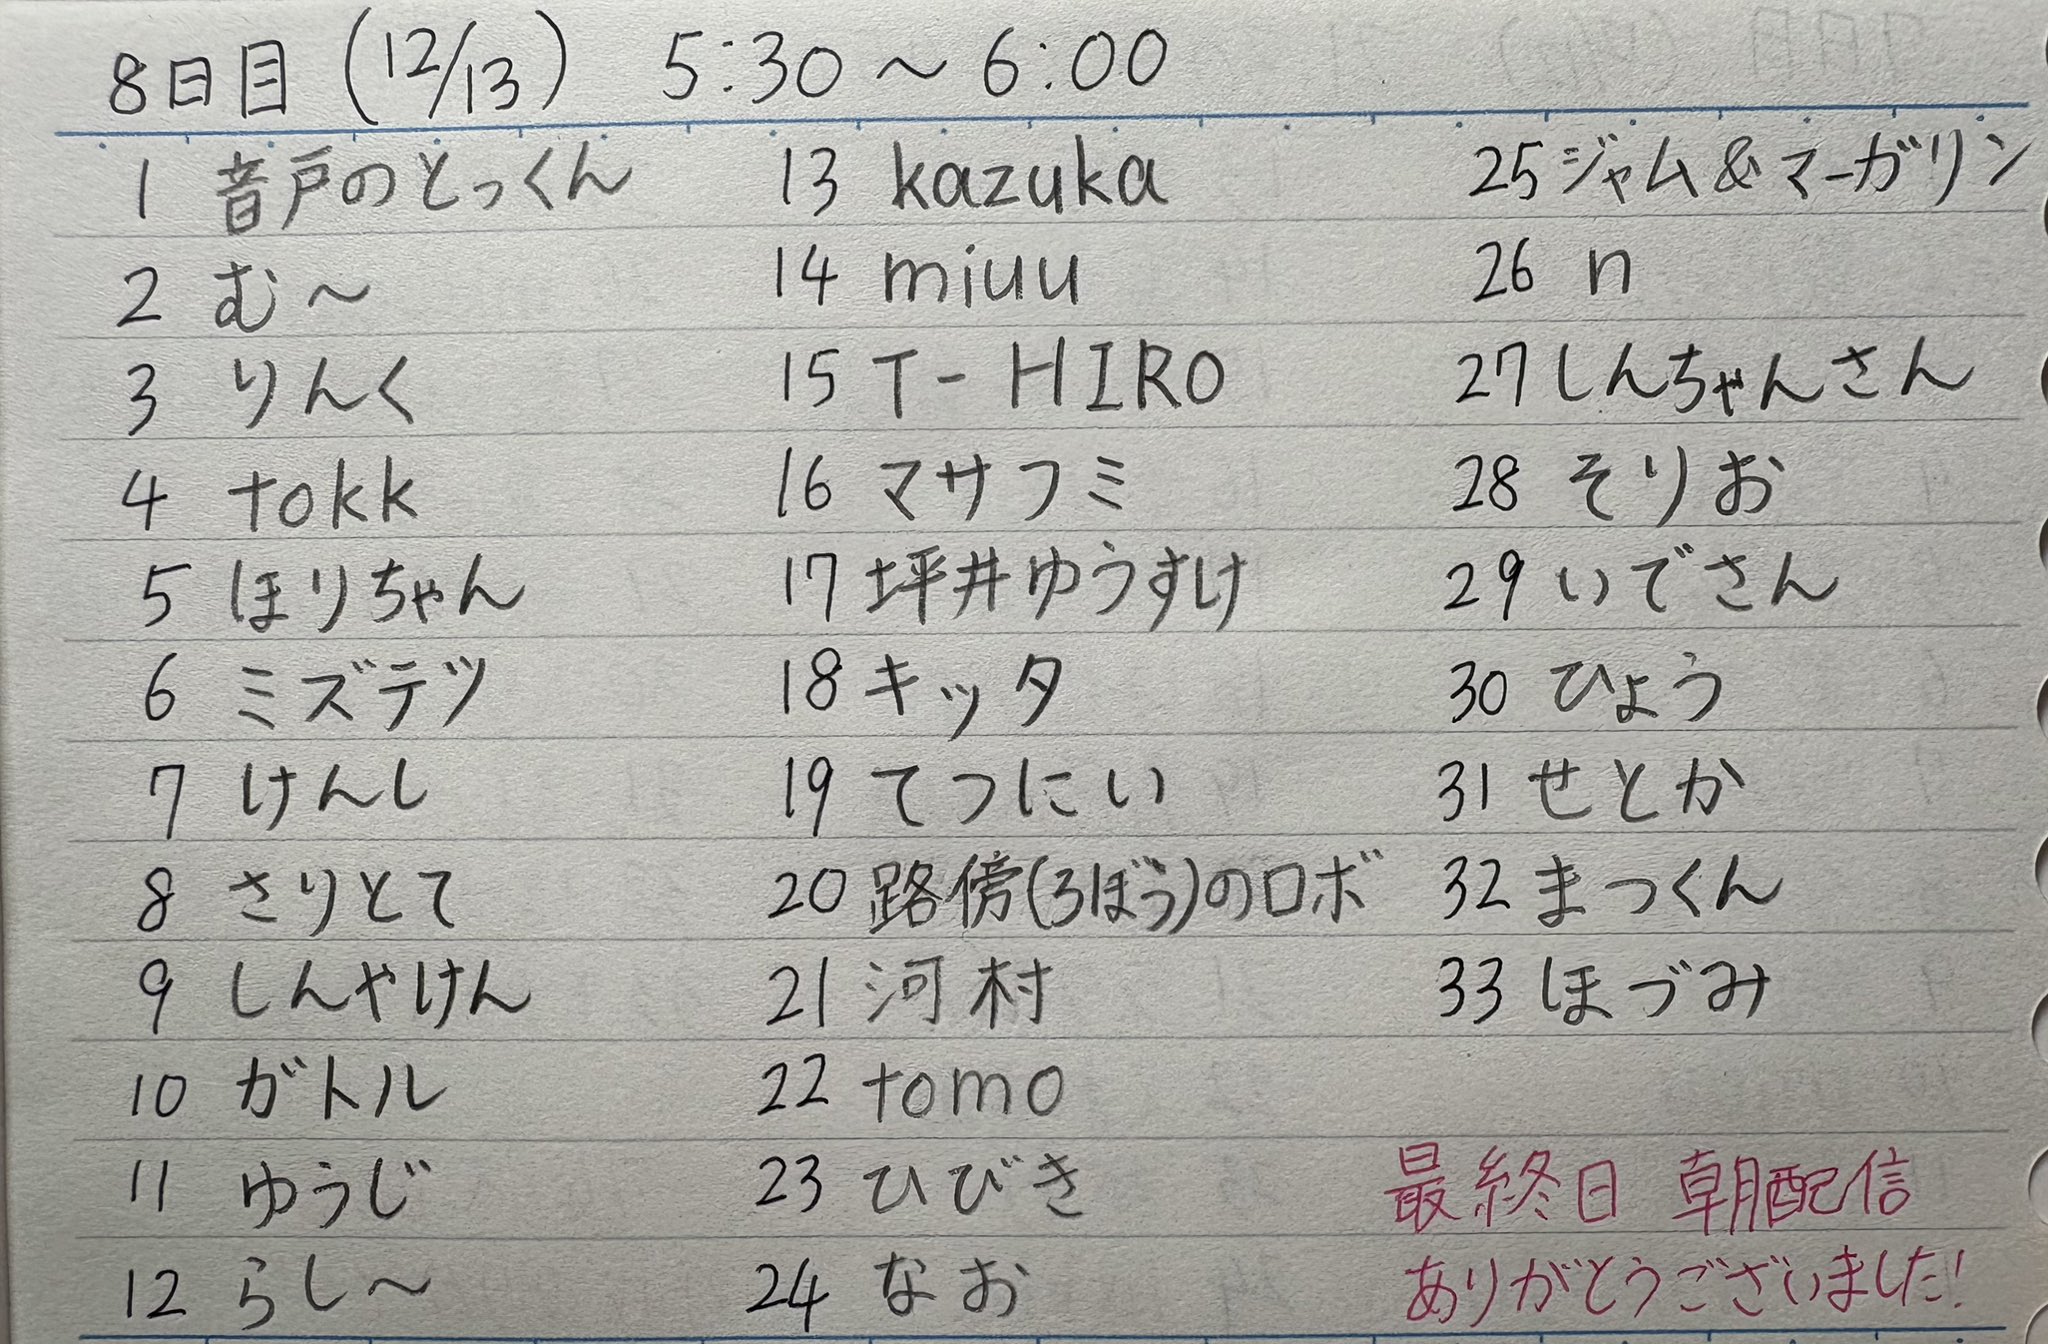 8日目 (12/13) 5:30～6:00
1 音戸のとっくん
2 む～
3 りんく
4 tokk
5 ほりちゃん
6 ミズテツ
7 けんし
8 さりとて
9 しんやけん
10 ガトル
11 ゆうじ
12 らし～
13 kazuka
14 miuu
15 T-HIRO
16 マサフミ
17 坪井ゆうすけ
18 キッタ
19 てつにい
20 路傍(ろぼう)のロボ
21 河村
22 tomo
23 ひびき
24 なお
25 ジャム&マーガリン
26 n
27 しんちゃんさん
28 そりお
29 いでさん
30 ひょう
31 せとか
32 まっくん
33 ほづみ
最終日 朝配信
ありがとうございました!